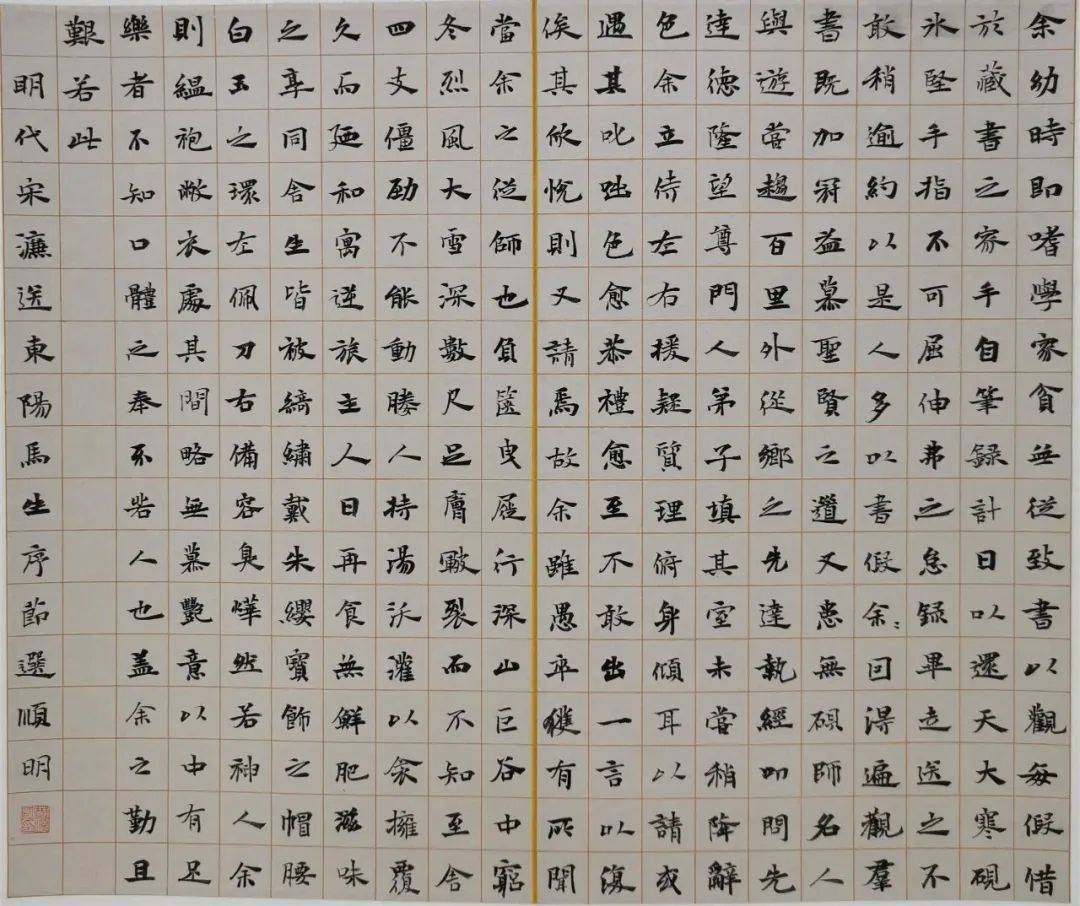 余幼時即嗜學家貧無從致書以觀每假借
於藏書之家手自筆錄計日以還天大寒硯
氷堅手指不可屈伸弗之怠錄畢走送之不
敢稍逾約以是人多以書假余〻因得遍觀羣
書既加冠益慕聖賢之道又患無碩師名人
與遊嘗趨百里外從鄉之先達執經叩問先
達德隆望尊門人弟子填其室未嘗稍降辭
色余立侍左右援疑質理俯身傾耳以請或
遇其叱咄色愈恭禮愈至不敢出一言以復
俟其欣悅則又請焉故余雖愚卒獲有所聞
當余之從師也負篋曳屣行深山巨谷中窮
冬烈風大雪深數尺足膚皸裂而不知至舍
四支僵勁不能動媵人持湯沃灌以衾擁覆
久而廼和寓逆旅主人日再食無鮮肥滋味
之享同舍生皆被綺繡戴朱纓寶飾之帽腰
白玉之環左佩刀右備容臭燁然若神人余
則縕袍敝衣處其間略無慕豔意以中有足
樂者不知口體之奉不若人也蓋余之勤且
艱若此
明代宋濂送東陽馬生序節選順明